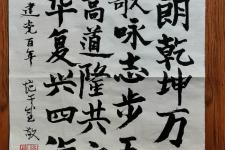 朗乾坤万
歌咏志步
高道隆共
华复兴四海
建党百年
敬